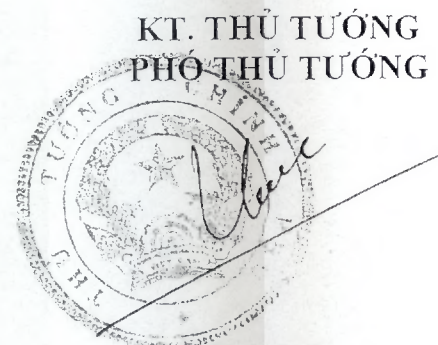 KT. THỦ TƯỚNG
PHÓ THỦ TƯỚNG
THỦ TƯỚNG CHÍNH